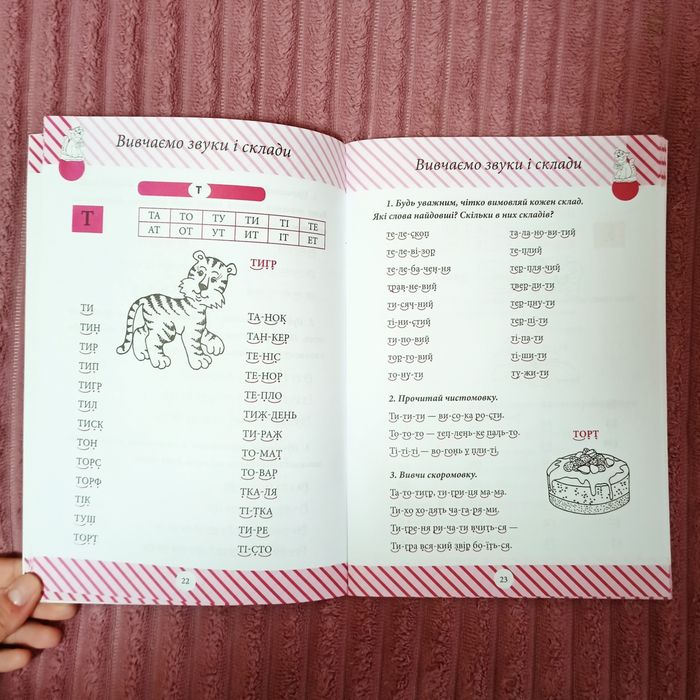 Вивчаємо звуки і склади
Т
Т
ТА ТО ТУ ТИ ТІ ТЕ
АТ ОТ УТ ИТ ІТ ЕТ
ТИГР
ТИ
ТИН
ТИР
ТИП
ТИГР
ТИЛ
ТИСК
ТОН
ТОРС
ТОРФ
ТІК
ТУШ
ТОРТ
ТА-НОК
ТАН-КЕР
ТЕ-НІС
ТЕ-НОР
ТЕ-ПЛО
ТИЖ-ДЕНЬ
ТИ-РАЖ
ТО-МАТ
ТО-ВАР
ТКА-ЛЯ
ТІ-ТКА
ТИ-РЕ
ТІ-СТО
22
Вивчаємо звуки і склади
1. Будь уважним, чітко вимовляй кожен склад.
Які слова найдовші? Скільки в них складів?
те-ле-скоп
те-ле-ві-зор
те-ле-ба-чен-ня
трав-не-вий
ти-сяч-ний
ті-ни-стий
ти-по-вий
тор-го-вий
то-ну-ти
та-ла-но-ви-тий
те-плий
тер-пля-чий
твер-ди-ти
тер-пну-ти
тер-пі-ти
ті-па-ти
ті-ши-ти
ту-жи-ти
2. Прочитай чистомовку.
Ти-ти-ти — ви-со-ка ро-сти.
То-то-то — теп-лень-ке паль-то.
Ті-ті-ті — во-гонь у пли-ті.
ТОРТ
3. Вивчи скоромовку.
Та-то-тигр, ти-гри-ця ма-ма.
Ти-хо хо-дять ча-га-ря-ми.
Ти-гре-ня ри-ча-ти вчить-ся —
Ти-гра вся-кий звір бо-їть-ся.
23